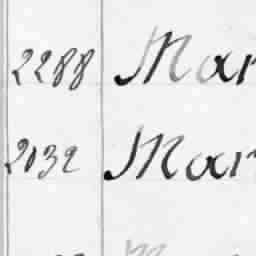 2288 Mar
2032 Mar